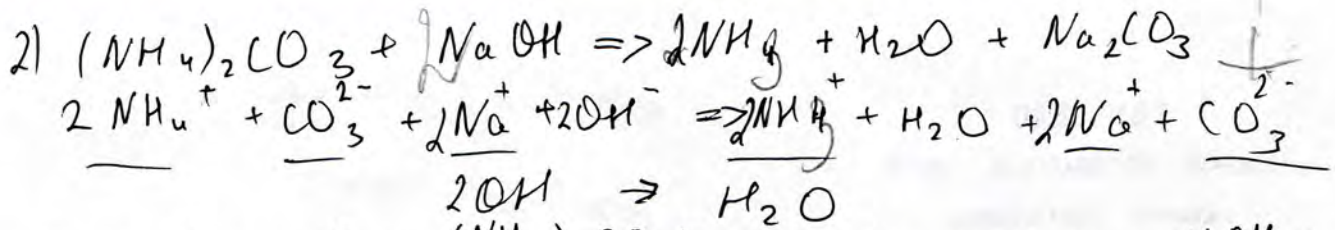 2) (NH₄)₂CO₃ + 2NaOH => 2NH₃ + H₂O + Na₂CO₃
2NH₄⁺ + CO₃²⁻ + 2Na⁺ + 2OH⁻ => 2NH₃⁺ + H₂O + 2Na⁺ + CO₃²⁻
2OH → H₂O